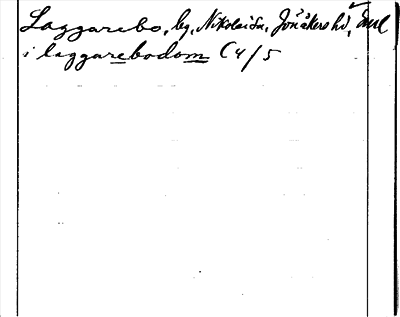 Laggarebo, by, Nikolai sn, Jönåkers hd,
i laggarebodom (4/5